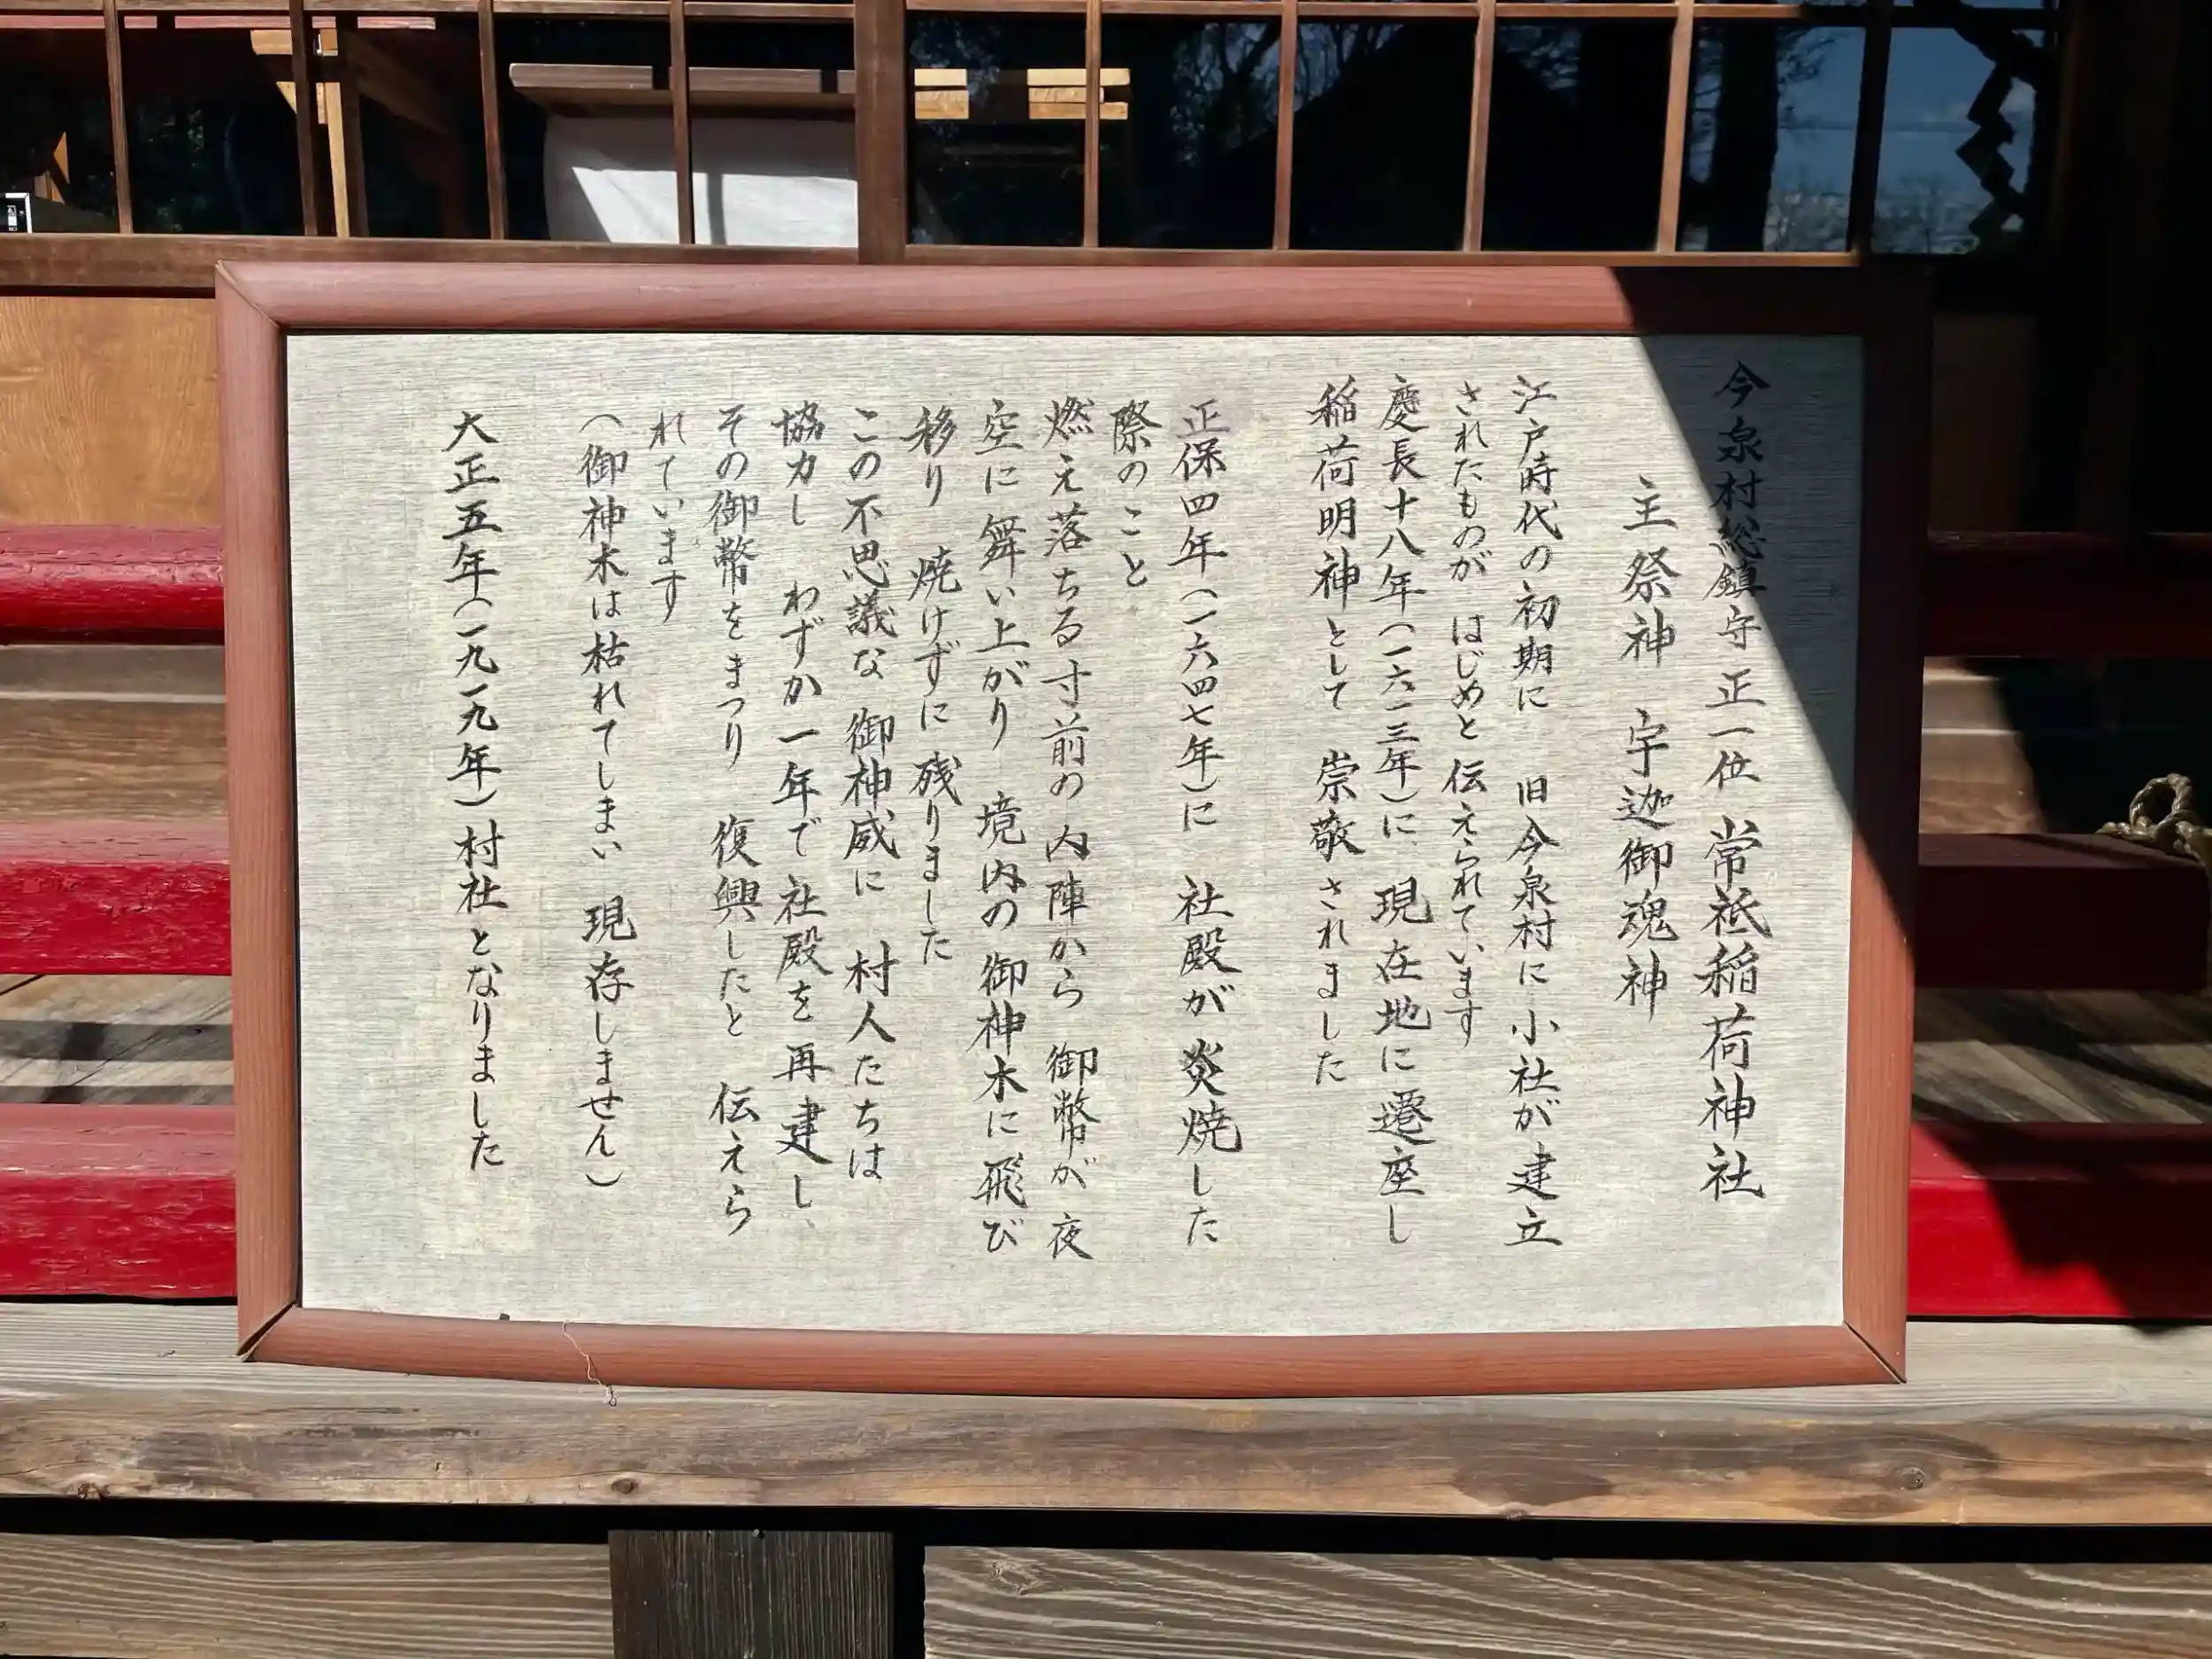 今泉村総鎮守 正一位 常祗稲荷神社
主祭神 宇迦御魂神
江戸時代の初期に 旧今泉村に小社が建立
されたものが はじめと伝えられています
慶長十八年(一六一三年)に 現在地に遷座し
稲荷明神として 崇敬されました
正保四年(一六四七年)に 社殿が炎焼した
際のこと
燃え落ちる寸前の内陣から 御幣が夜
空に舞い上がり 境内の御神木に飛び
移り 焼けずに残りました
この不思議な御神威に 村人たちは
協力し わずか一年で社殿を再建し、
その御幣をまつり 復興したと 伝えら
れています
(御神木は枯れてしまい 現存しません)
大正五年(一九一九年)村社となりました